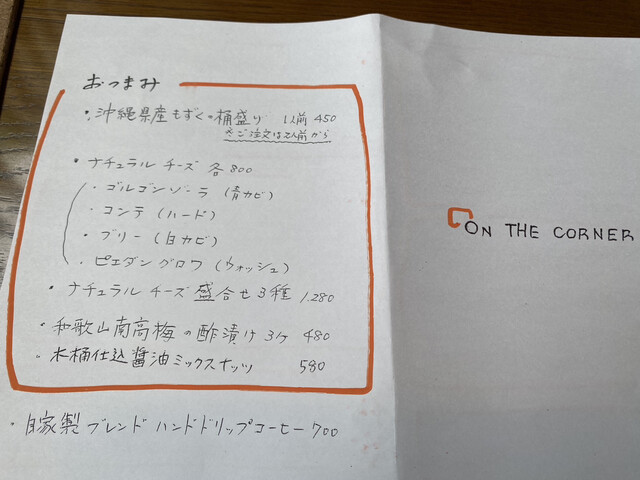 おつまみ
・沖縄県産もずくの桶盛り 1人前 450
※ご注文は2人前から
・ナチュラルチーズ 各800
・ゴルゴンゾーラ (青カビ)
・コンテ (ハード)
・ブリー (白カビ)
・ピエダングロワ (ウォッシュ)
・ナチュラルチーズ盛合せ3種 1.280
・和歌山南高梅の酢漬け 3ケ 480
・木桶仕込醤油ミックスナッツ 580
・自家製ブレンドハンドドリップコーヒー 700
ON THE CORNER